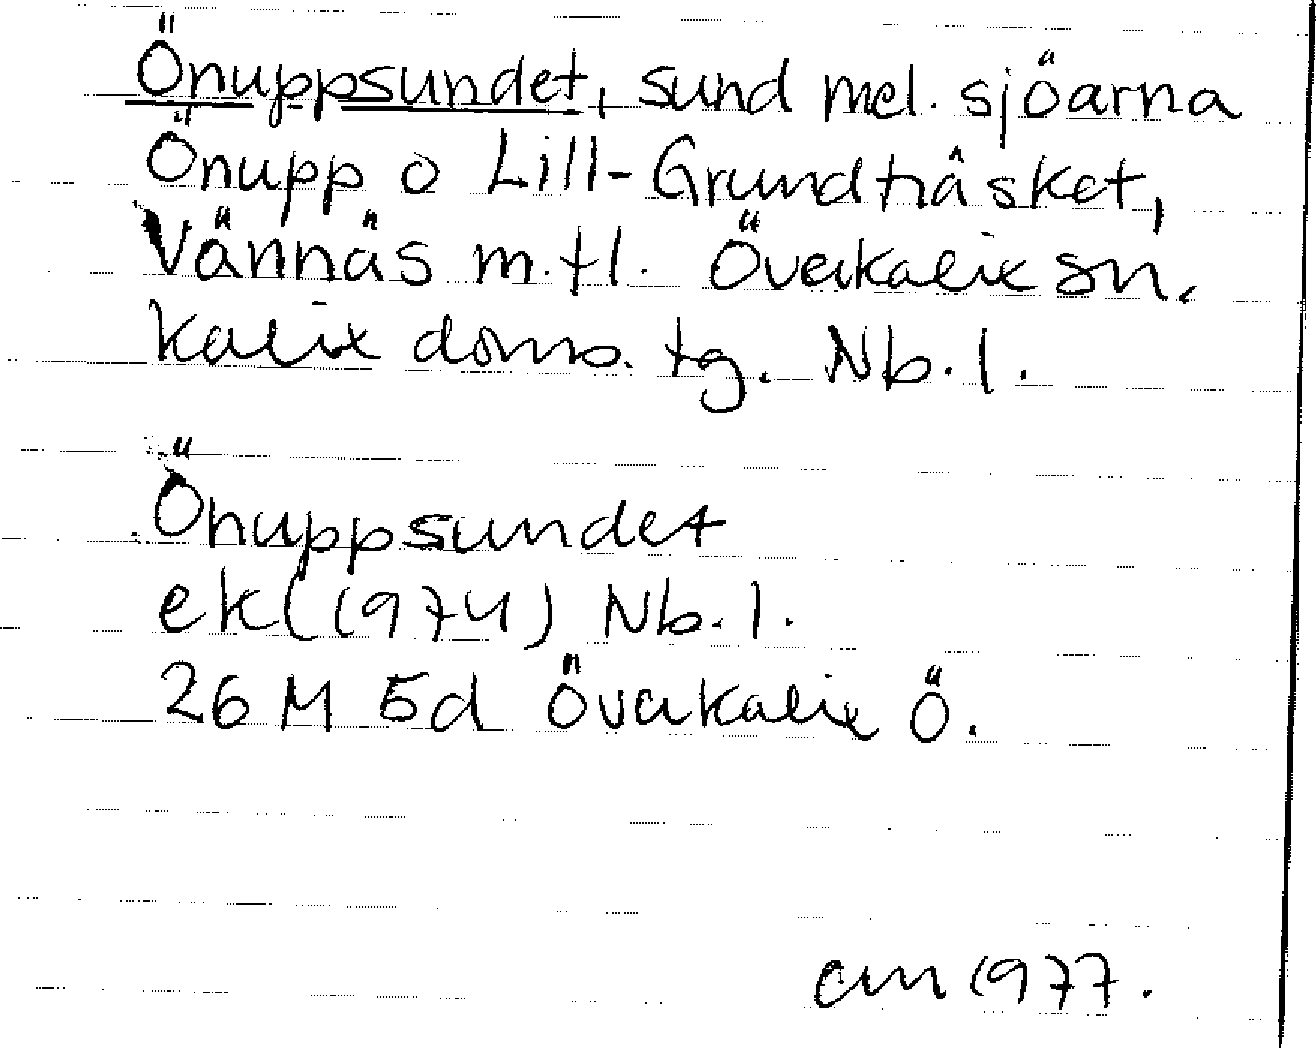 Önuppsundet, sund mel. sjöarna
Önupp o Lill-Grundträsket,
Vännäs m.fl. Överkalix sn.
Kalix doms. tg. Nb.l.
Önuppsundet
ek (1974) Nb.l.
26 M 5d Överkalix Ö.
am 1977.